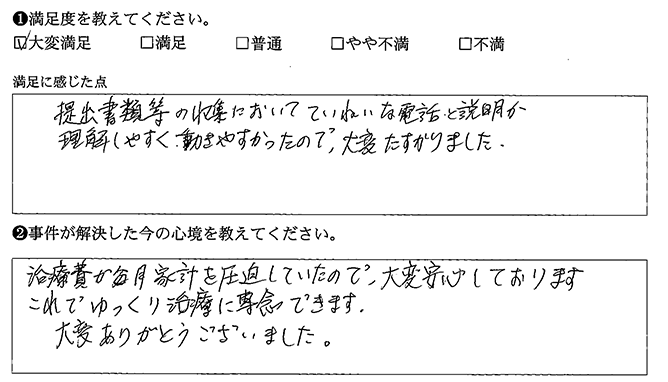 ❶満足度を教えてください。
☑大変満足 □満足 □普通 □やや不満 □不満
満足に感じた点
提出書類等の収集においてていねいな電話と説明が
理解しやすく、動きやすかったので、大変たすかりました。
❷事件が解決した今の心境を教えてください。
治療費が毎月家計を圧迫していたので、大変安心しております
これでゆっくり治療に専念できます。
大変ありがとうございました。